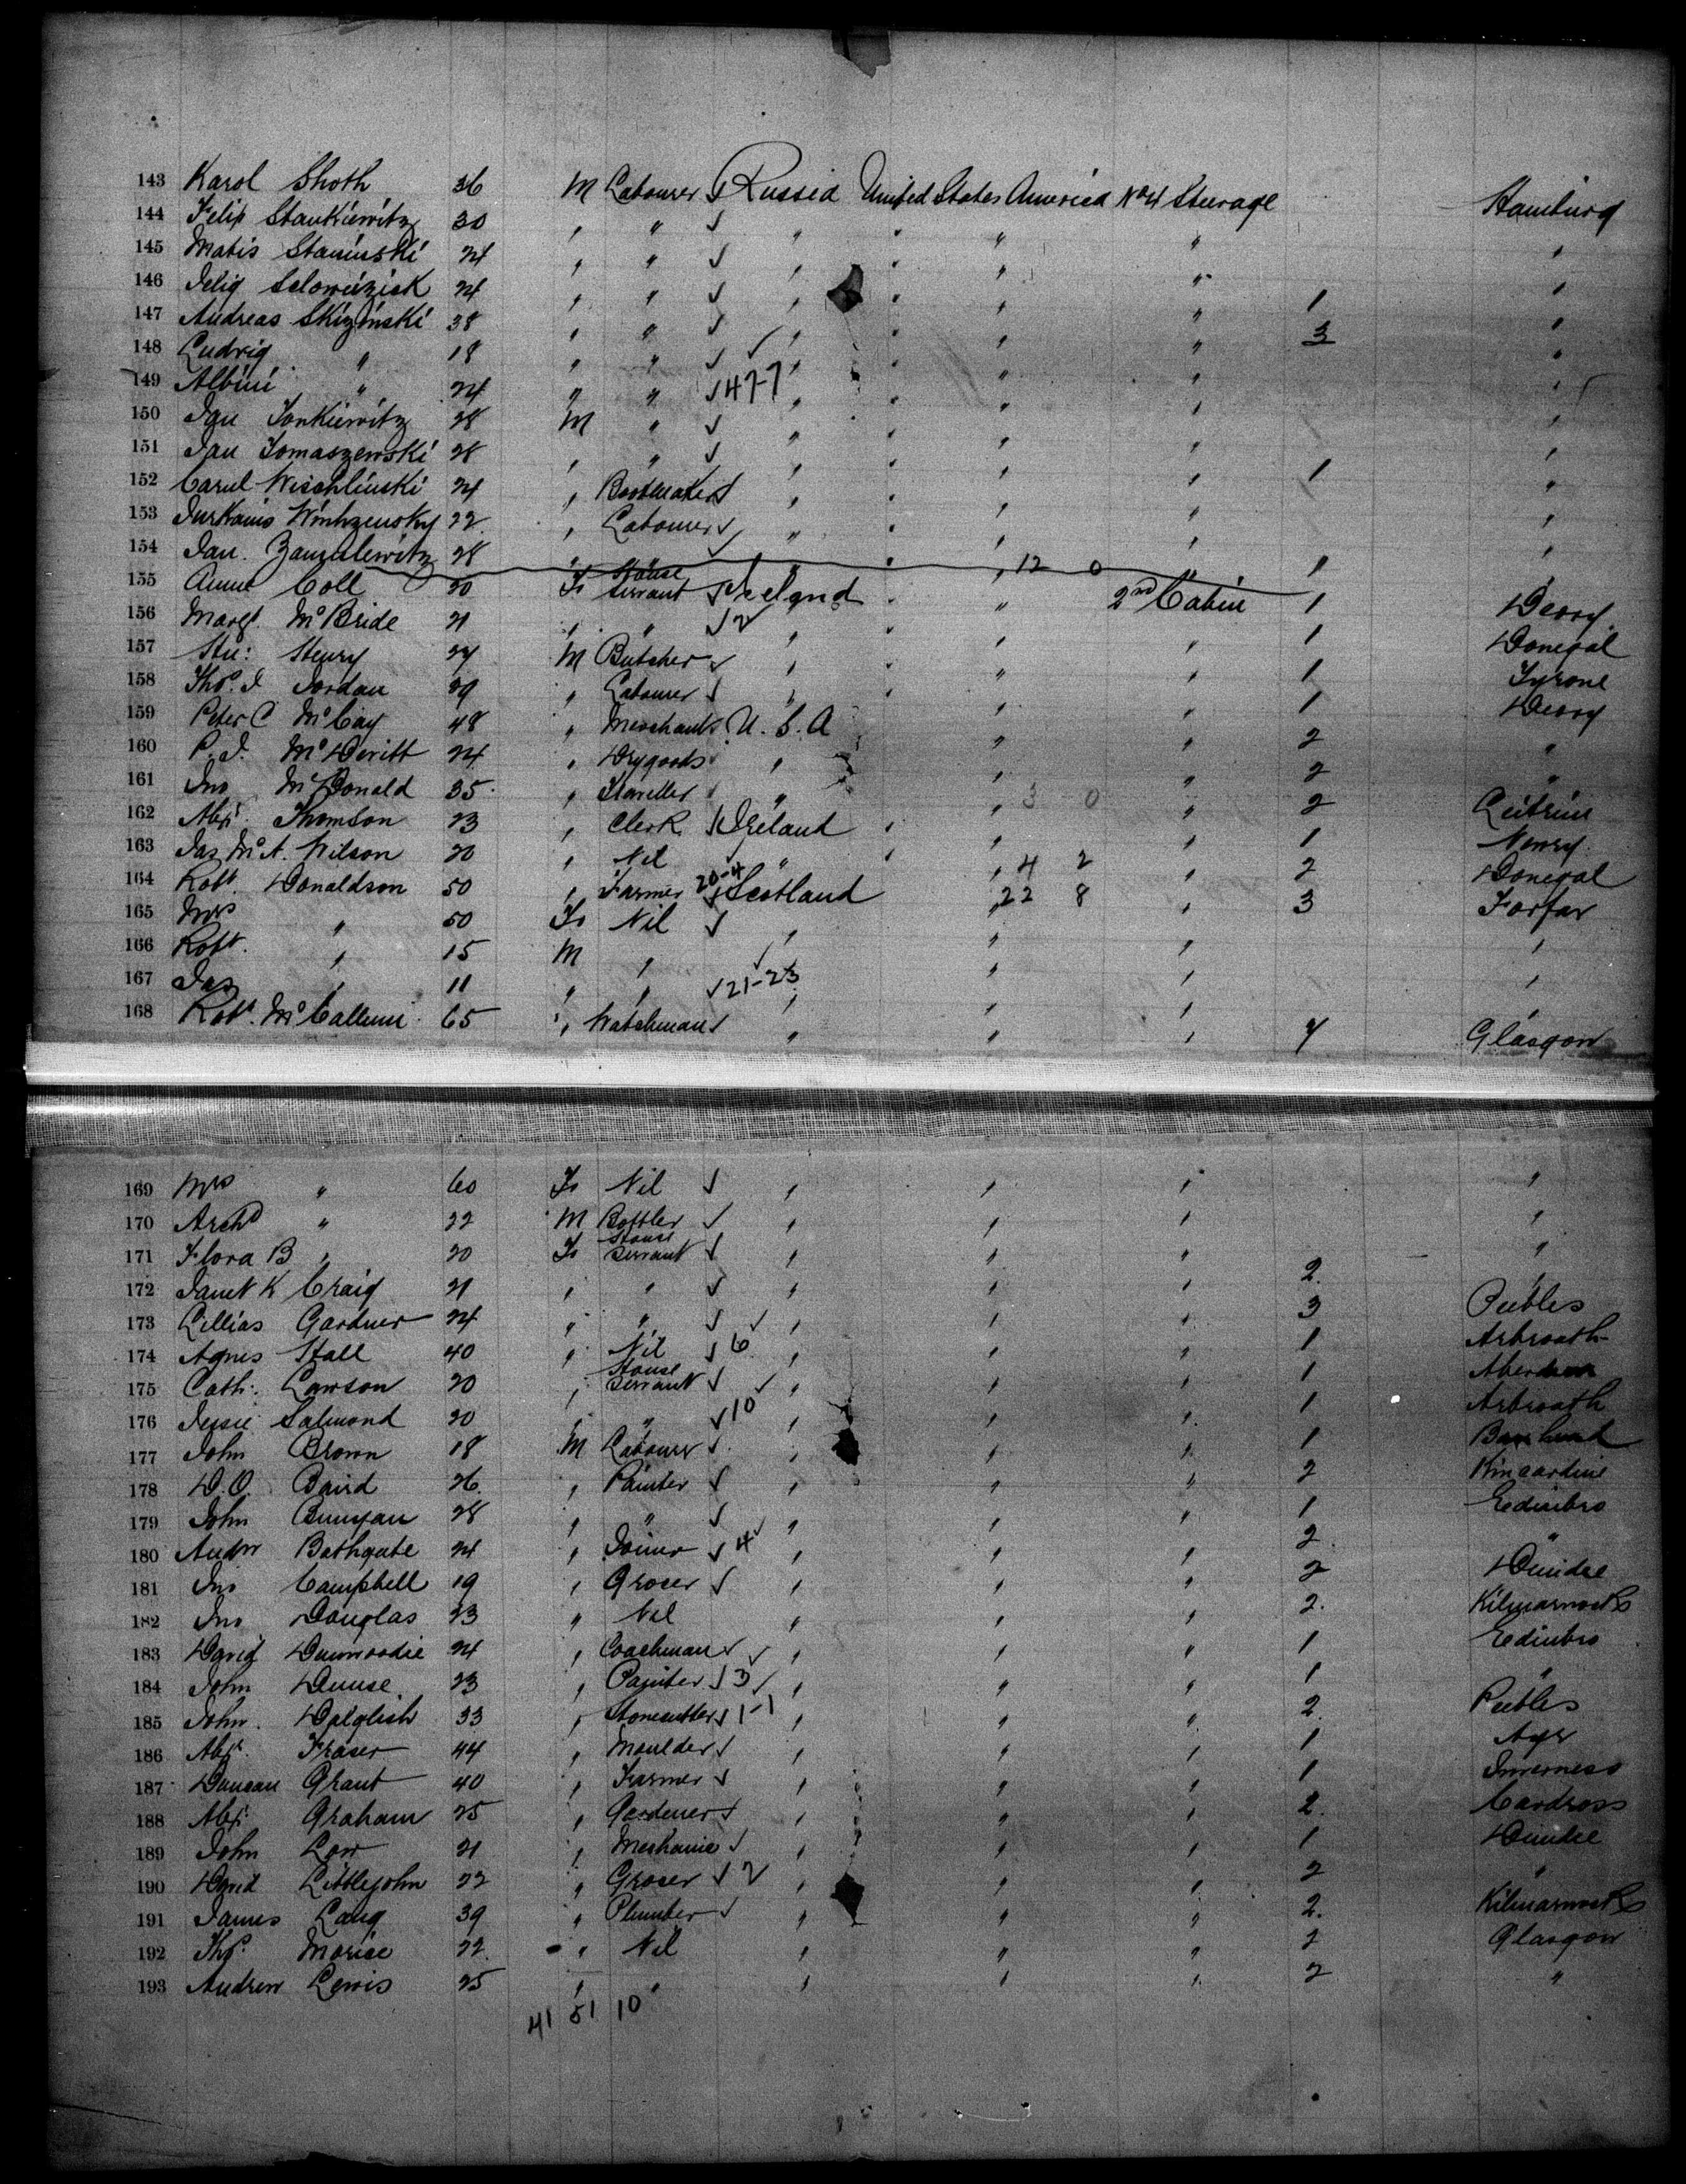 143 Karol Shoth 36 M Labourer Russia United States America No 4 Steerage Hamburg
144 Felix Stankiewitz 30 " " " " " "
145 Matis Staninski 24 " " " " " "
146 24 " " " " " 1 "
147 Andreas Skizinski 38 " " " " " 3 "
148 Ludwig " 18 " " " " " "
149 Albini " 24 " " 47-7 " " " "
150 Jan Jankiewitz 28 M " " " " "
151 Jan Tomaszewski 28 " " " " " 1 "
152 Carul Wischlinski 24 " Bootmaker " " " "
153 22 " Labourer " " " "
154 Jan. 28 " " " " 12 0 " 1 "
155 Anne Coll 20 F House Servant Ireland " 2nd Cabin 1 Derry
156 Margt. McBride 21 " " 2 " " " 1 Donegal
157 Henry 27 M Butcher " " " 1 Tyrone
158 Thos. J Jordan 29 " Labourer " " " 1 Derry
159 Peter C McCay 48 " Merchant U.S.A " " 2 "
160 P. J. McDevitt 24 " Drygoods " " " 2 "
161 Jno McDonald 35 " Traveller " " 3 0 " 2 Leitrim
162 Alexr. Thomson 23 " Clerk Ireland " " 1 Newry
163 Jas McA. Wilson 20 " Nil " " 4 2 " 2 Donegal
164 Robt. Donaldson 50 " Farmer 20-4 Scotland " 22 8 " 3 Forfar
165 Mrs " 50 F Nil " " " "
166 Robt. " 15 M " " " " "
167 Jas " 11 " " 21-23 " " " "
168 Robt. McCallum 65 " Watchman " " " Glasgow
169 Mrs " 60 F Nil " " " "
170 Archd " 22 M Bottler " " " "
171 Flora B " 20 F House Servant " " " "
172 Janet K Craig 21 " " " " " 2. "
173 Lillias Gardner 24 " " " " " 3 Peebles
174 Agnes Hall 40 " Nil 6 " " " 1 Arbroath
175 Cath: Lawson 20 " House Servant " " " 1 Aberdeen
176 Jessie Salmond 20 " " 10 " " " 1 Arbroath
177 John Brown 18 M Labourer " " " 1
178 D. O. Baird 26 " Painter " " " 2 Kincardine
179 John Bunyan 28 " " " " " 1 Edinbro
180 Andw Bathgate 24 " Joiner 4 " " " 2 "
181 Jno Campbell 19 " Grocer " " " 2 Dundee
182 Jno Douglas 23 " Nil " " " 2. Kilmarnock
183 David Dunwoodie 24 " Coachman " " " 1 Edinbro
184 John 23 " Painter 3 " " " 1 "
185 John. Dalglish 33 " Stonecutter 1-1 " " " 2. Peebles
186 Alexr. Fraser 44 " Moulder " " " 1 Ayr
187 Duncan Grant 40 " Farmer " " " 1 Inverness
188 Alexr. Graham 25 " Gardener " " " 2. Cardross
189 John Low 21 " Mechanic " " " 1 Dundee
190 David Littlejohn 22 " Grocer 2 " " " 2 "
191 James Lang 39 " Plumber " " " 2. Kilmarnock
192 Thos. Morice 22 " Nil " " " 2 Glasgow
193 Andrew Lewis 25 " " " " " 2 "
41 51 10